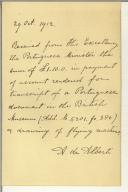 29 Oct. 1912.
Received from His Excellency
the Portuguese Minister the
sum of £1.10.0. in payment
of account rendered for
transcript of a Portuguese
document in the British
Museum (Add.
& drawing of flying machine
A. de Alberti